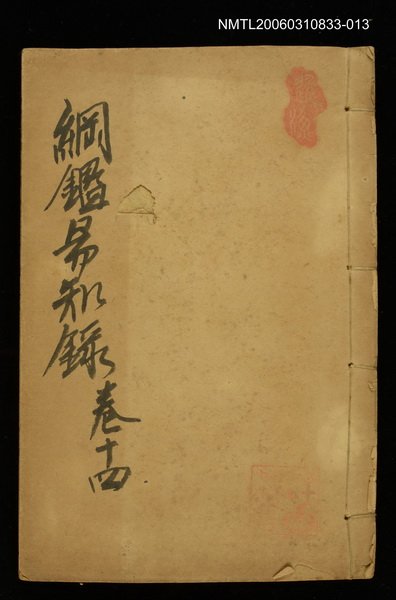 NMTL20060310833-013
綱鑑易知錄卷十四